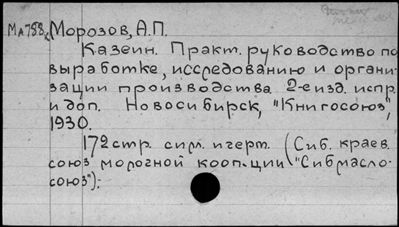 Ма788 Морозов, А.П.
Казеин. Практ. руководство по
выработке, исследованию и органи-
зации производства 2-е изд. испр.
и доп. Новосибирск, "Книгосоюз",
1930.
172 стр. с илл. и черт. (Сиб. краев.
союз молочной кооп-ции "Сибмасло-
союз").